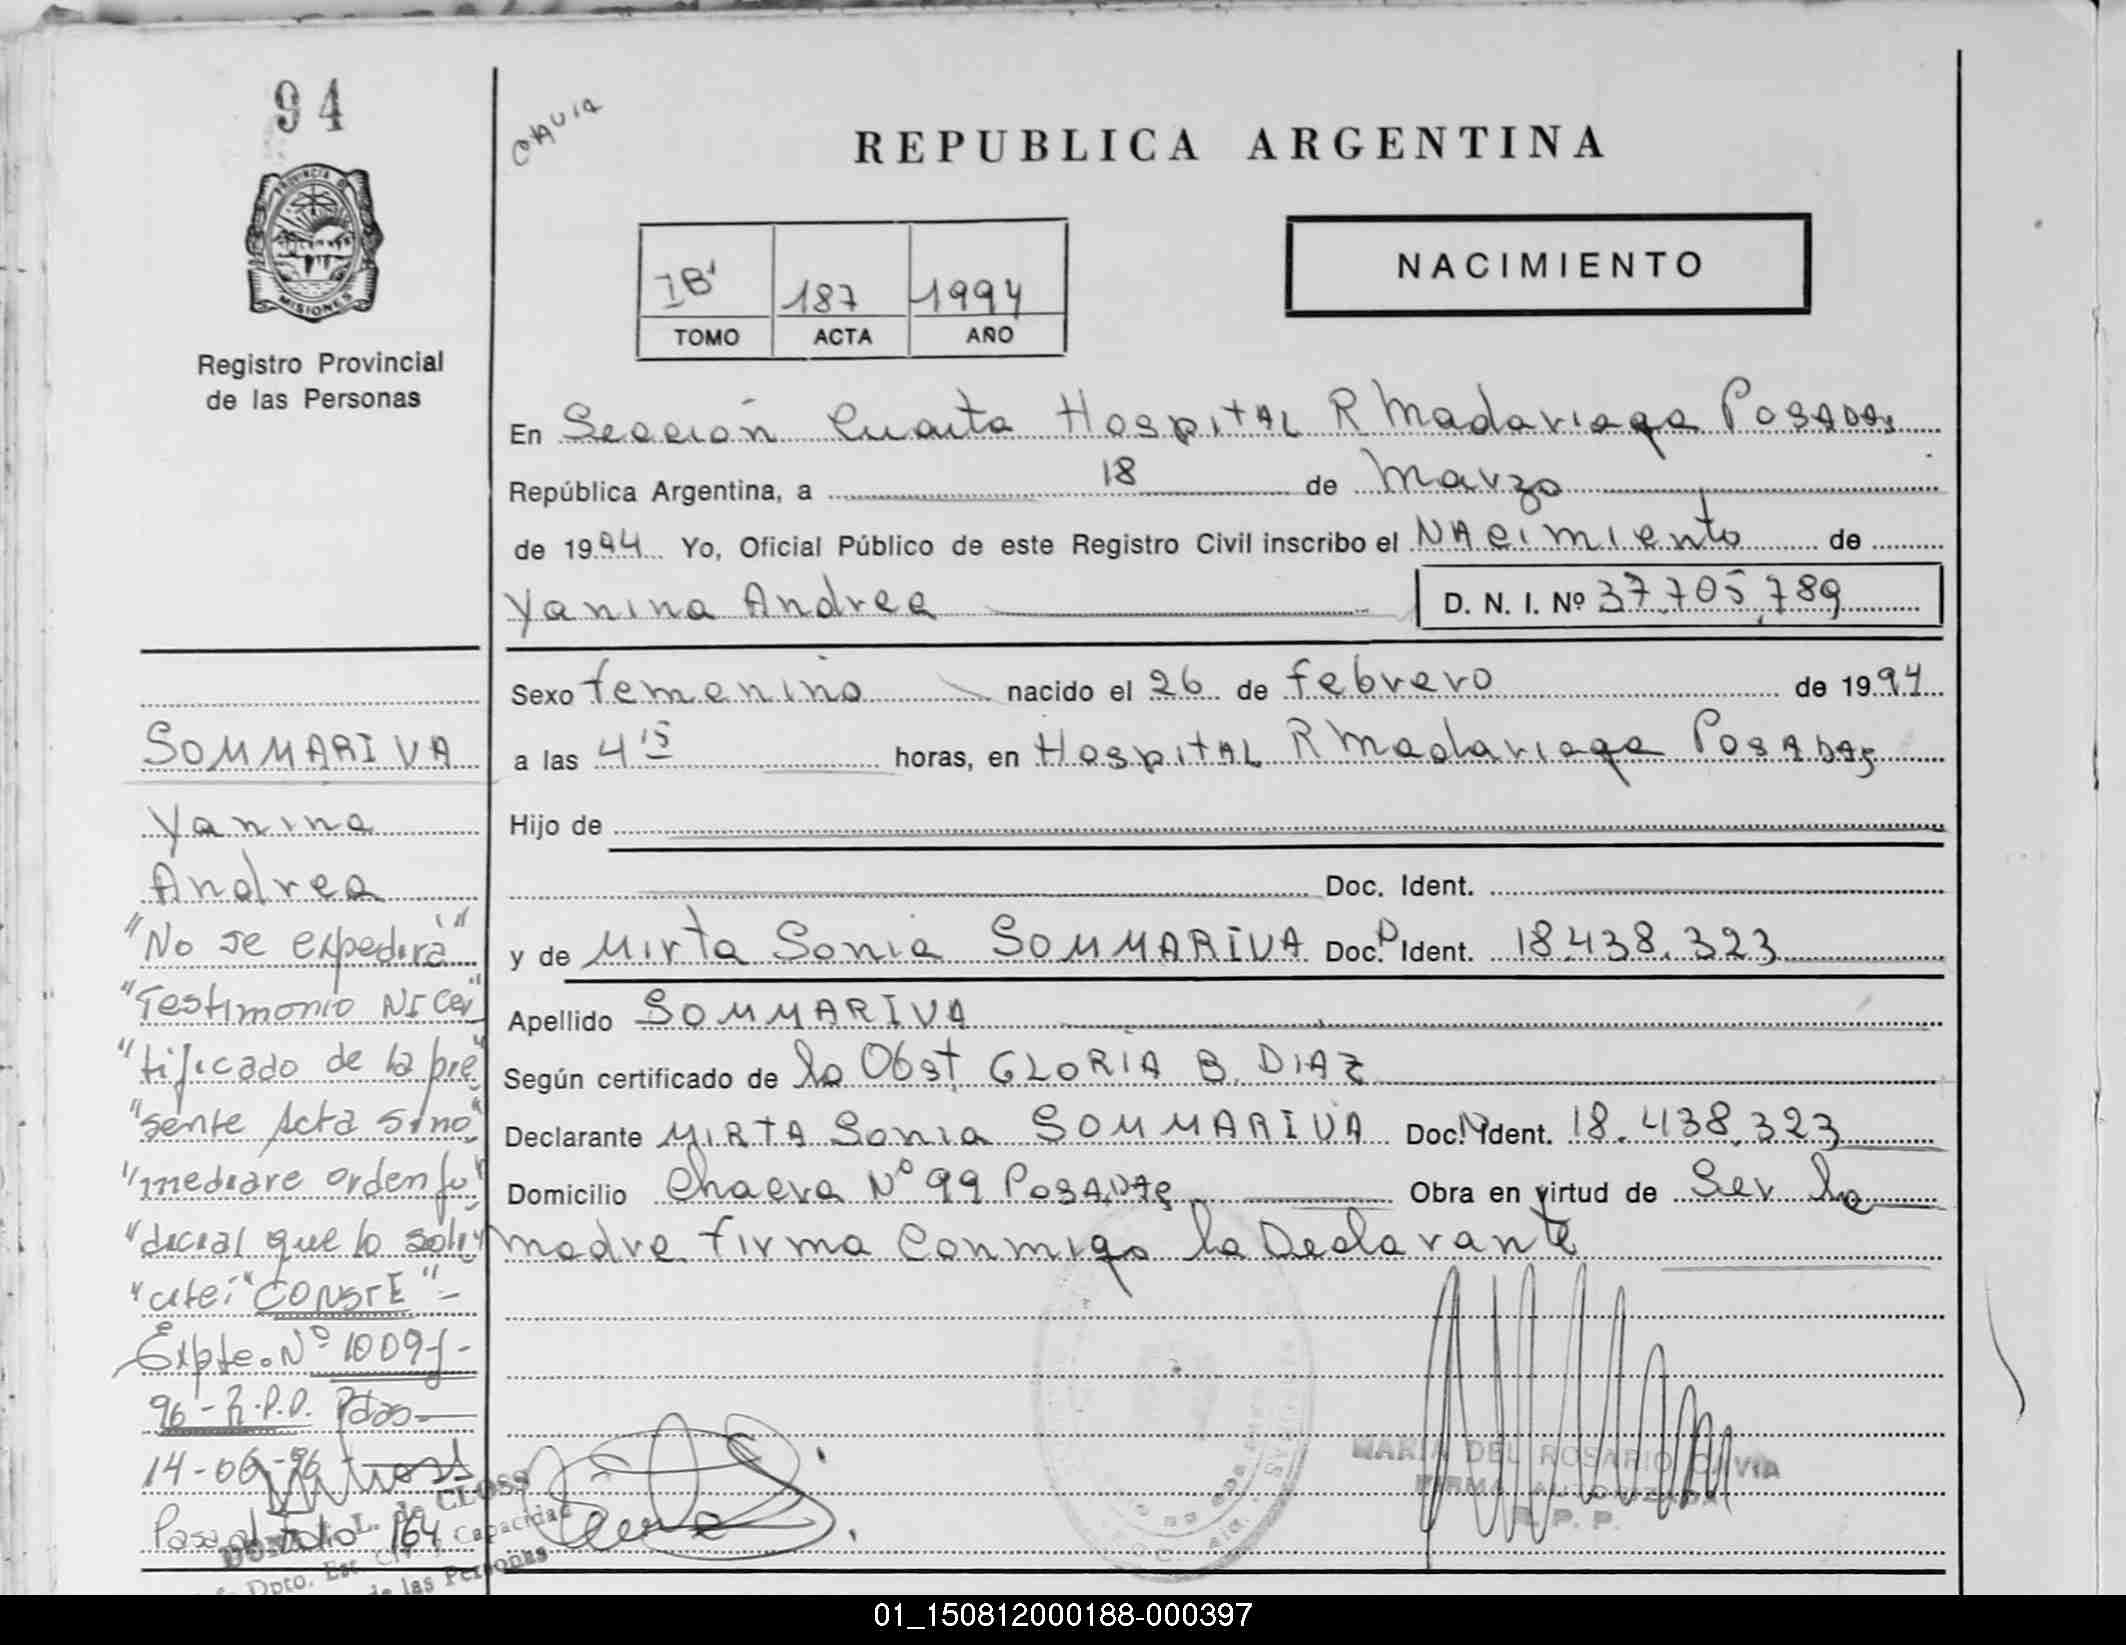 94
CAVIA
REPUBLICA ARGENTINA
PROVINCIA DE
MISIONES
Registro Provincial
de las Personas
IB' 187 1994
TOMO ACTA AÑO
NACIMIENTO
En Sección Cuarta Hospital R Madariaga Posadas
República Argentina, a 18 de Marzo
de 1994 Yo, Oficial Público de este Registro Civil inscribo el Nacimiento de
Yanina Andrea D. N. I. Nº 37.705.789
Sexo femenino nacido el 26 de febrero de 1994
a las 4 15 horas, en Hospital R Madariaga Posadas
Hijo de
Doc. Ident.
y de Mirta Sonia SOMMARIVA Doc. Ident. 18.438.323
Apellido SOMMARIVA
Según certificado de la Obst. GLORIA B. DIAZ
Declarante MIRTA Sonia SOMMARIVA Doc. Ident. 18.438.323
Domicilio Chacra Nº 99 POSADAS Obra en virtud de Ser la
madre firma conmigo la Declarante
SOMMARIVA
Yanina
Andrea
"No se expedirá"
"Testimonio NI Cer"
"tificado de la pre"
"sente Acta sino"
"mediare orden ju"
"dicial que lo soli"
"cite:" "CONSTE"-
Expte. Nº 1009-
96- R.P.P. Pdas-
14-06-96
164
L. de CLOSS
Dpto. Est. Civ. y Capacidad
de las Personas
MARIA DEL ROSARIO CAVIA
FIRMA AUTORIZADA
R. P. P.
01_150812000188-000397